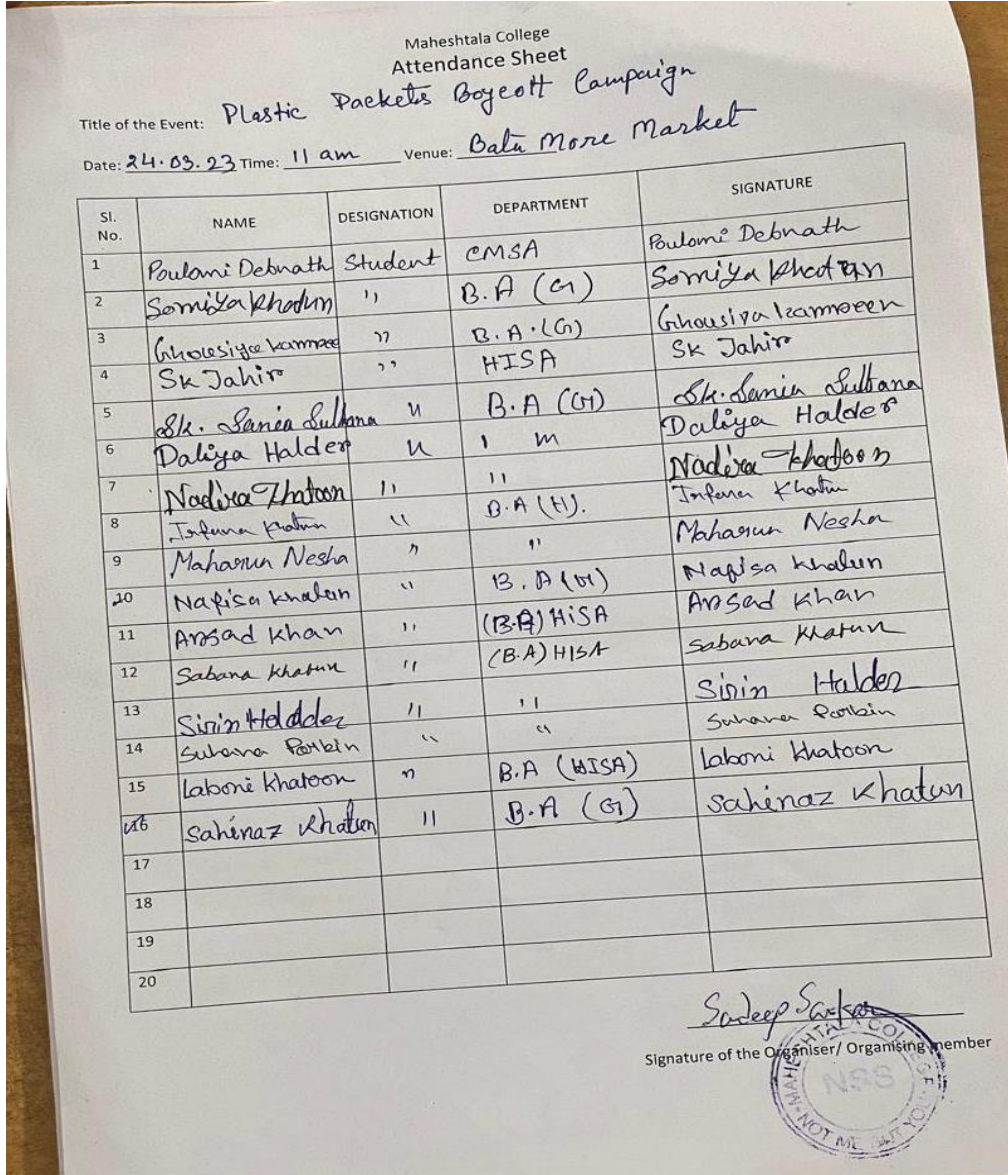 Maheshtala College
Attendance Sheet
Title of the Event: Plastic Packets Boycott Campaign
Date: 24.03.23 Time: 11 am Venue: Bata More Market
Sl. No. NAME DESIGNATION DEPARTMENT SIGNATURE
1 Poulami Debnath Student CMSA Poulomi Debnath
2 Somiya Khatun " B.A (G) Somiya Khatun
3 " B.A.(G)
4 SK Jahir " HISA SK Jahir
5 Sk. Sania Sultana " B.A (G) Sk. Sania Sultana
6 Daliya Halder " " Daliya Halder
7 Nadira Khatoon " " Nadira Khatoon
8 Khatun " B.A (H). Khatun
9 Maharun Nesha " " Maharun Nesha
10 Nafisa Khatun " B.A Nafisa Khatun
11 Arsad Khan " (B.A) HISA Arsad Khan
12 Sabana Khatun " (B.A) HISA Sabana Khatun
13 Sirin Halder " " Sirin Halder
14 Suhana Parbin " " Suhana Parbin
15 Laboni Khatoon " B.A (HISA) Laboni Khatoon
16 Sahinaz Khatun " B.A (G) Sahinaz Khatun
17
18
19
20
Sarkar
Signature of the Organiser/ Organising member
MAHESHTALA COLLEGE
NSS
NOT ME BUT YOU